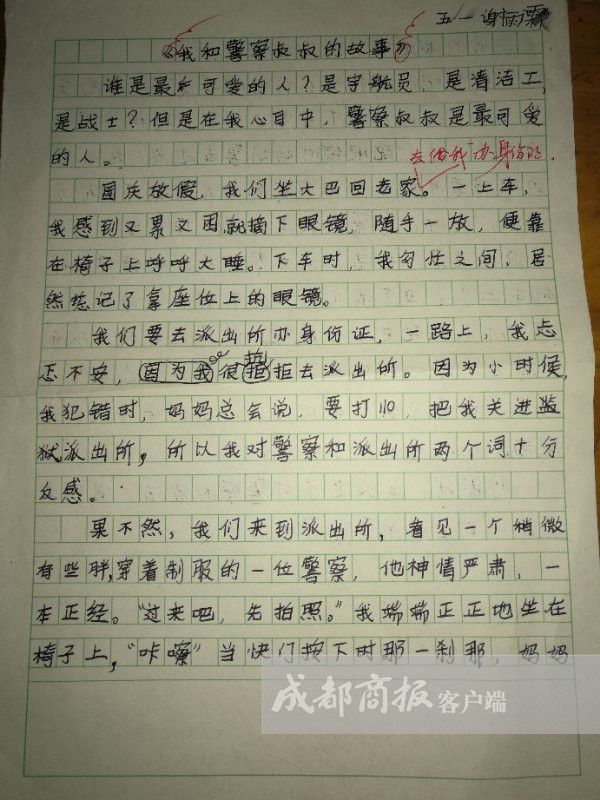 五一 谢雨霖
《我和警察叔叔的故事》
谁是最可爱的人？是宇航员，是清洁工，
是战士？但是在我心目中，警察叔叔是最可爱
的人。
去给我办身份证.
国庆放假，我们坐大巴回老家。一上车，
我感到又累又困，就摘下眼镜，随手一放，便靠
在椅子上呼呼大睡。下车时，我匆忙之间，居
然忘记了拿座位上的眼镜。
我们要去派出所办身份证，一路上，我忐
忑不安，因为我很抗拒去派出所。因为小时候，
我犯错时，妈妈总会说，要打110，把我关进监
狱派出所，所以我对警察和派出所两个词十分
反感。
果不然，我们来到派出所，看见一个稍微
有些胖，穿着制服的一位警察，他神情严肃，一
本正经。“过来吧，先拍照。”我端端正正地坐在
椅子上，“咔嚓”当快门按下时那一刹那，妈妈
成都商报客户端